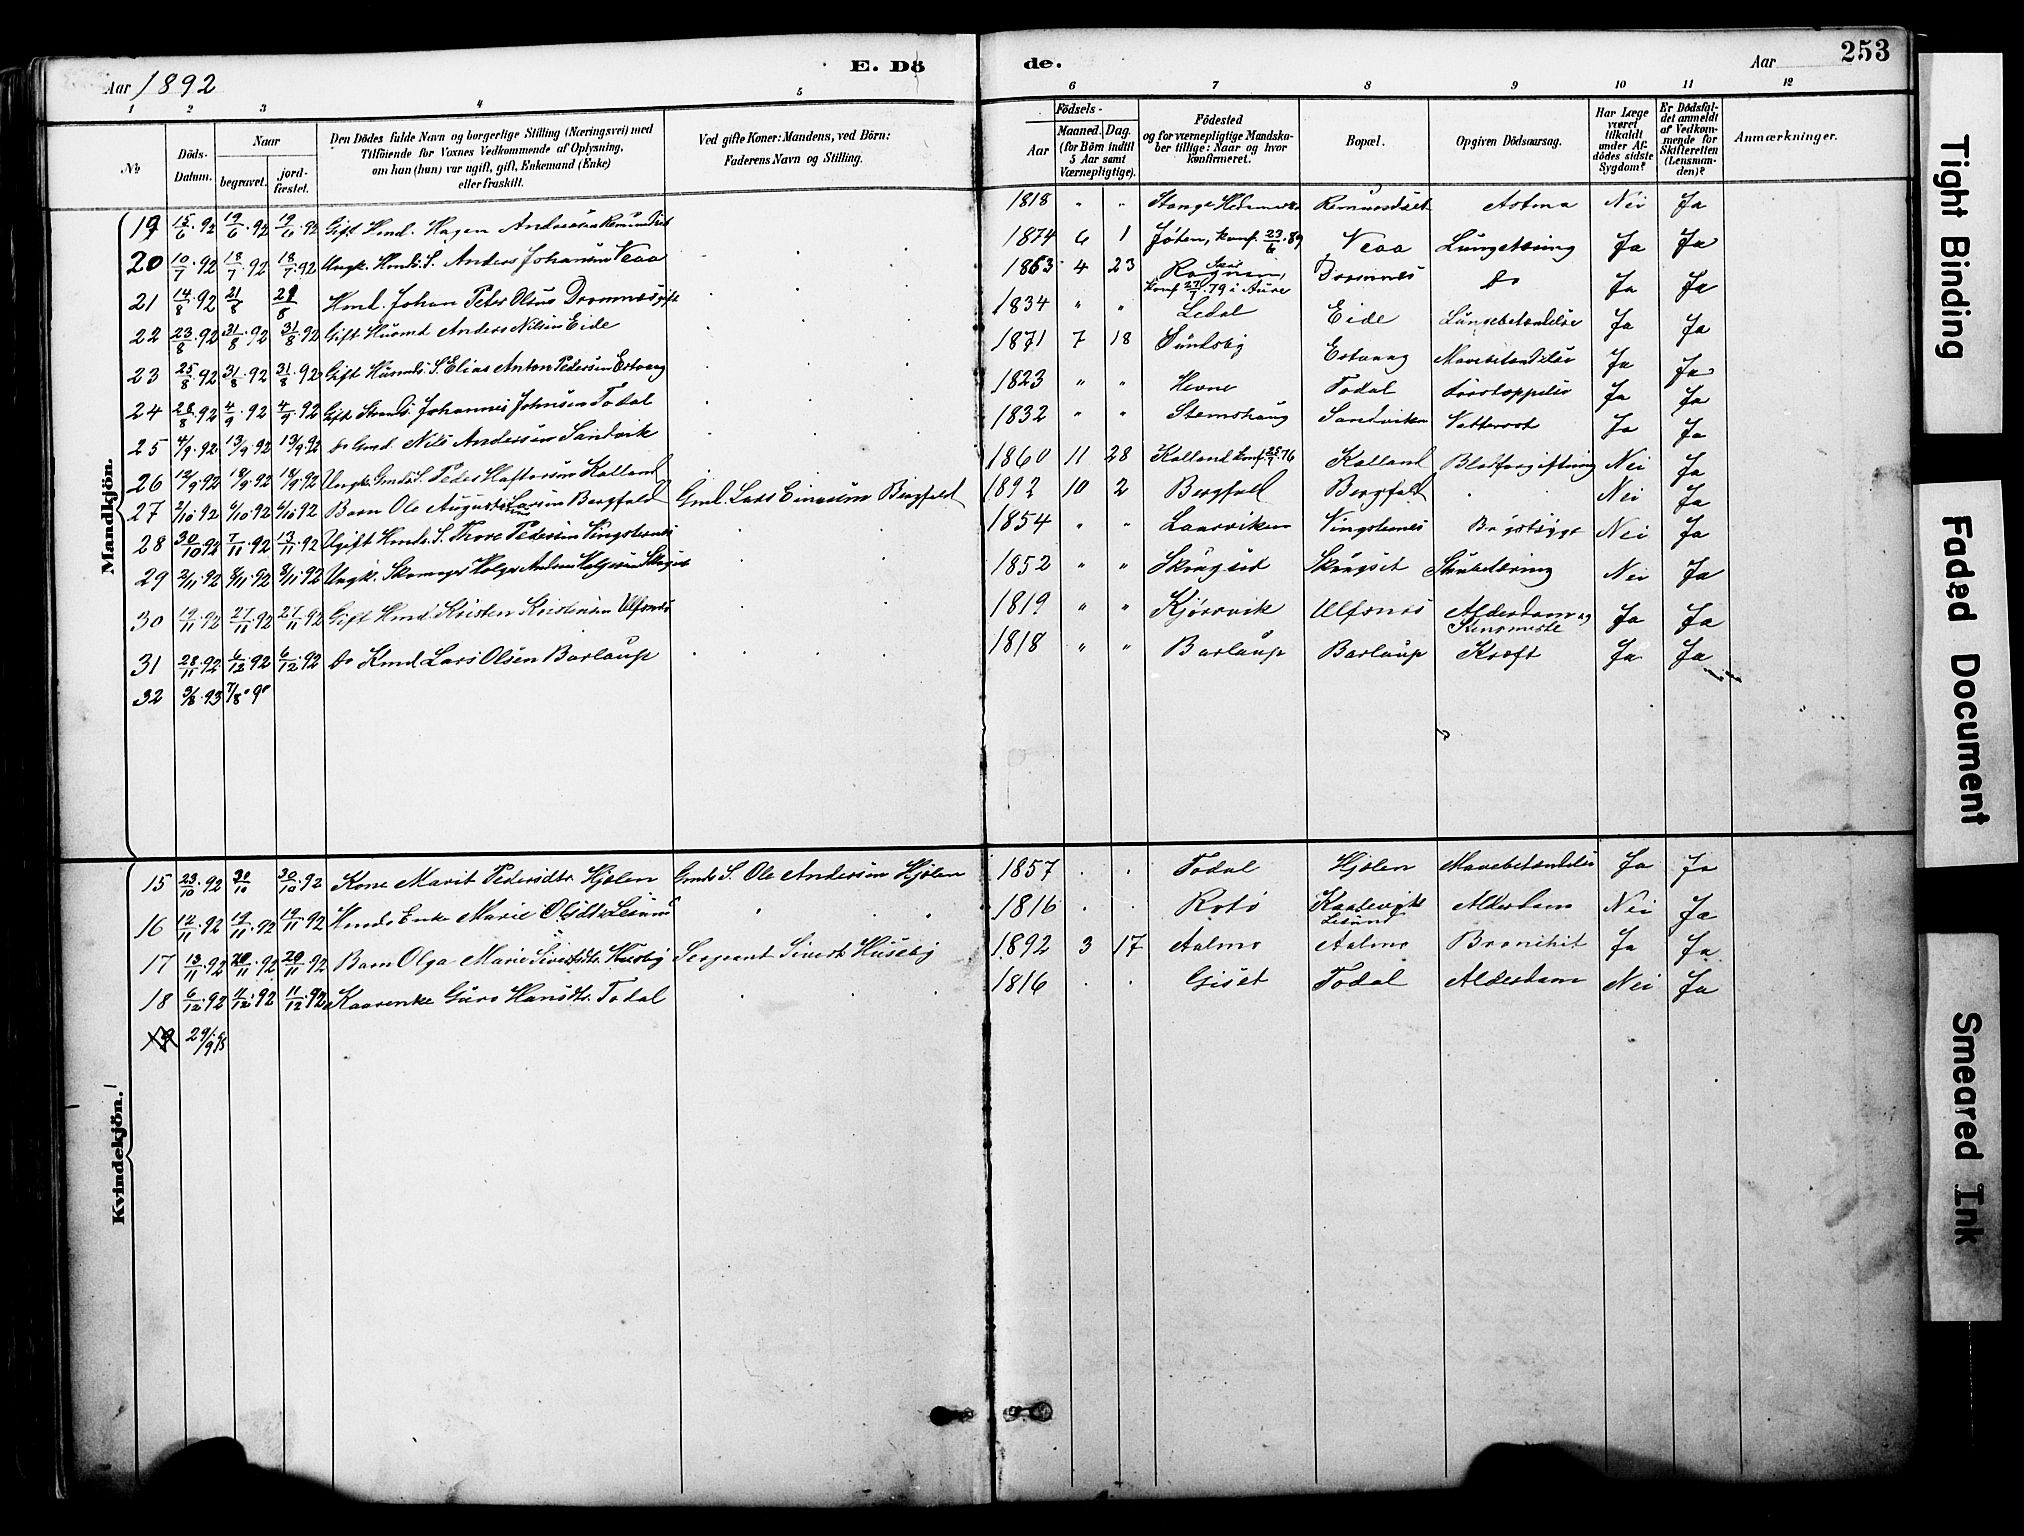 Aar 1892
E. Dö
de.
Aar
253
1 2 3 4 5 6 7 8 9 10 11 12
No
Döds-Datum.
Naar
begravet.
jordfæstet.
Den Dödes fulde Navn og borgerlige Stilling (Næringsvei) med
Tilföiende for Voxnes Vedkommende af Oplysning,
om han (hun) var ugift, gift, Enkemand (Enke)
eller fraskilt.
Ved gifte Koner: Mandens, ved Börn:
Faderens Navn og Stilling.
Födsels-
Aar
Maaned. Dag.
(for Börn indtil
5 Aar samt
Værnepligtige).
Födested
og for værnepligtige Mandska-
ber tillige: Naar og hvor
konfirmeret.
Bopæl.
Opgiven Dödsaarsag.
Har Læge
været
tilkaldt
under Af-
dödes sidste
Sygdom?
Er Dödsfal-
det anmeldt
af Vedkom-
mende for
Skifteretten
(Lensman-
den)?
Anmærkninger.
Mandkjön.
19 15/6.92 19/6.92 19/6.92 Gift Kmd. Hagen Andreasen Remundset 1818 " " Stange Hedemarke Remundset Astma Nei Ja
20 10/7.92 18/7.92 18/7.92 Ungk. Hmds. S. Anders Johansen Veaa 1874 6 1 Jøten, konf. 23/6.89 Veaa Lungetæring Ja Ja
21 14/8.92 21/8 21/8 Hmd. Johan Peter Olsen Dromnes gift 1863 4 23 Rognem, konf 27/7.79 i Aure Dromnes Do Ja Ja
22 23/8.92 31/8.92 31/8.92 Gift Husmd Anders Nilsen Eide 1834 " " Ledal Eide Lungebetændelse Ja Ja
23 25/8.92 31/8.92 31/8.92 Gift Husmds. S. Elias Anton Pedersen Estvaag 1871 7 18 Sundsby Estvaag Mavebetændelse Ja Ja
24 28/8.92 4/9.92 4/9.92 Gift Johannes Johnsen Todal 1823 " " Hevne Todal Ja Ja
25 4/9.92 13/9.92 13/9.92 do Gmd. Nils Andersen Sandvik 1832 " " Stemshaug Sandviken Vattersot Ja Ja
26 12/9.92 18/9.92 18/9.92 Ungk. Gmds S. Peder Haftorsen Kalland 1860 11 28 Kalland konf. 76 Kalland Blodforgiftning Nei Ja
27 2/10.92 6/10.92 6/10.92 Barn Ole August Larsen Bergfald Gmd. Lars Einersen Bergfald 1892 10 2 Bergfald Bergfald Nei Ja
28 30/10.92 7/11.92 13/11.92 Ugift Hmds. S. Thore Pedersen Vingsternes 1854 " " Laurviken Vingsternes Brystsyge Nei Ja
29 2/11.92 8/11.92 8/11.92 Ungk. Skomager Holger Andreas Holgersen Skogset 1852 " " Skougset Skougset Strubetæring Nei Ja
30 19/11.92 27/11.92 27/11.92 Gift Hmd. Kristen Kristensen Ulfsnes 1819 " " Kjørsvik Ulfsnes Alderdom og Ja Ja
31 28/11.92 6/12.92 6/12.92 do Kmd Lars Olsen Barlaup 1818 " " Barlaup Barlaup Kræft Ja Ja
32 3/8.93 7/8.9
Kvindekjön.
15 23/10.92 30/10 30/10.92 Kone Marit Pedersdtr. Hjølen Gmds S. Ole Andersen Hjølen 1857 . . Todal Hjølen Mavebetændelse Ja Ja
16 12/11.92 19/11.92 19/11.92 Hmds Enke Marie Olsdtr. Lesund 1816 . . Rotø Kaalevigk Lesund Alderdom Nei Ja
17 13/11.92 20/11.92 20/11.92 Barn Olga Marie Sivertsdtr. Huseby Sergeant Sivert Huseby 1892 3 17 Aalmo Aalmo Bronchit Ja Ja
18 6/12.92 11/12.92 11/12.92 Kaarenke Guro Hansdtr. Todal 1816 . . Giset Todal Alderdom Nei Ja
19 29/
Tight Binding
Faded Document
Smeared Ink